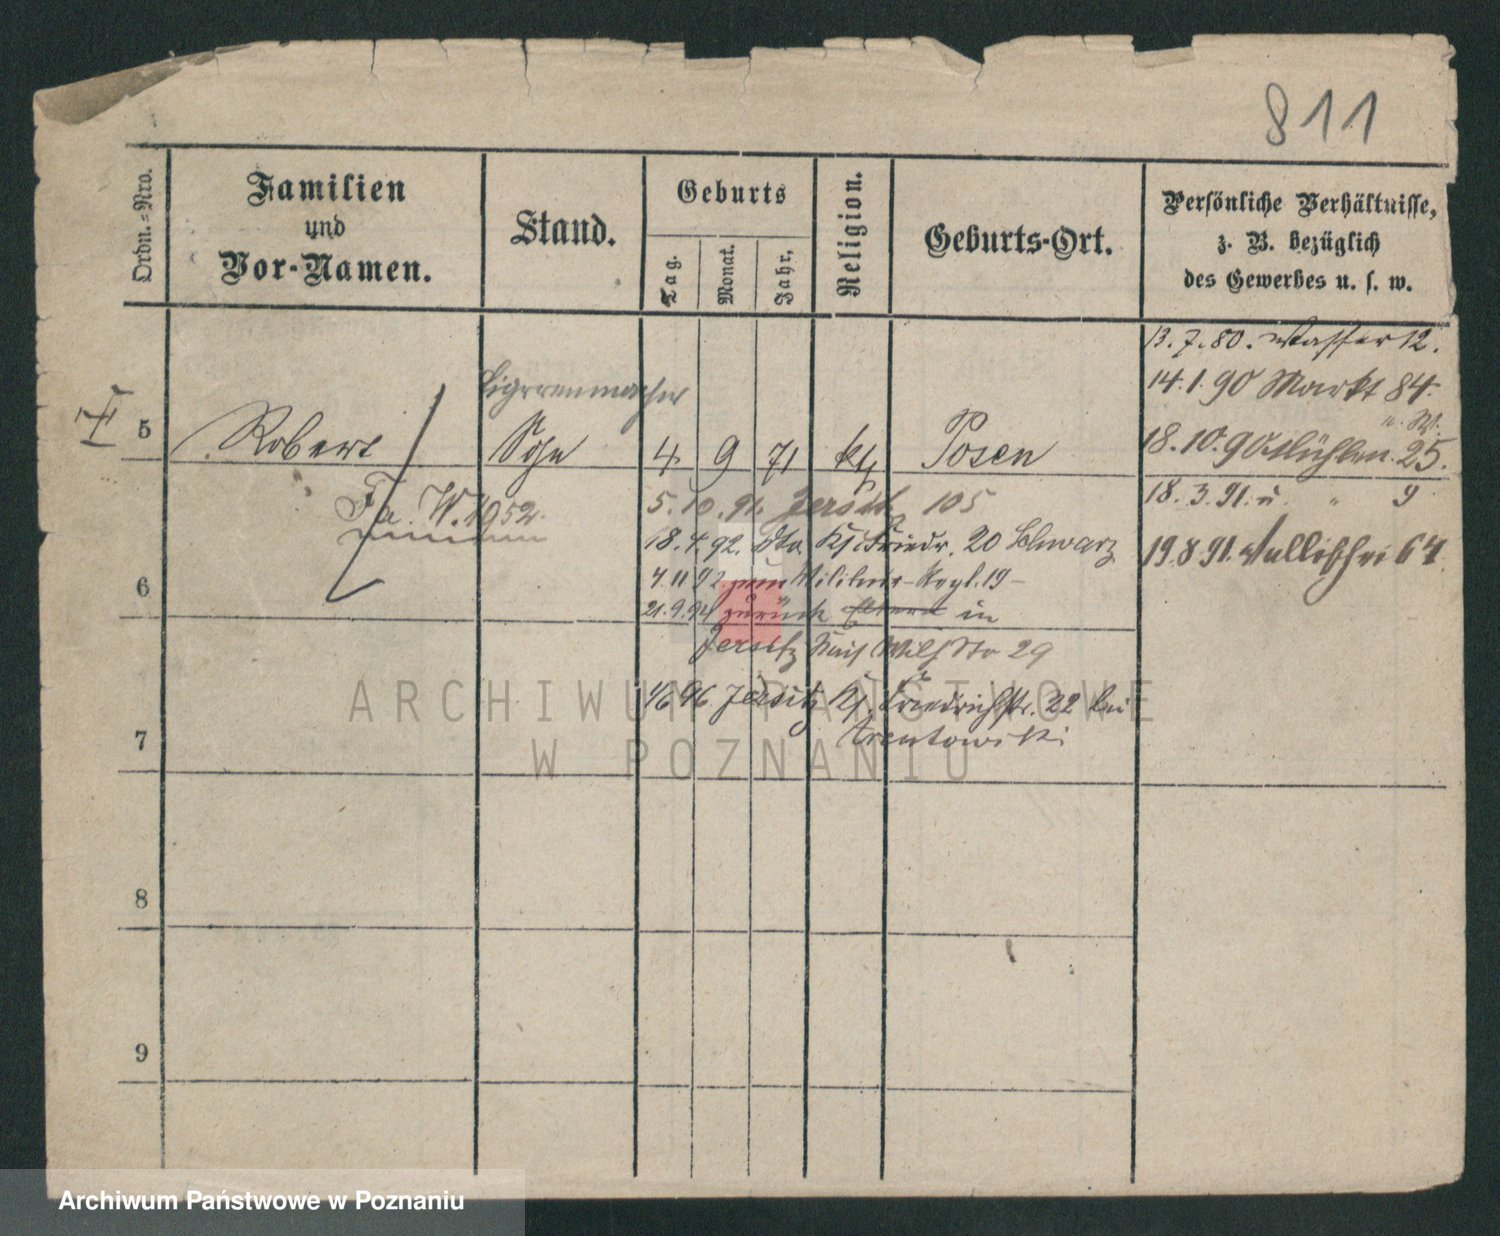 811
Ordn.=Nro.
Familien
und
Vor-Namen.
Stand.
Geburts
Tag.
Monat.
Jahr.
Religion.
Geburts-Ort.
Persönliche Verhältnisse,
z. B. bezüglich
des Gewerbes u. s. w.
13. 7. 80. Wasser 12.
14. 1. 90 Markt 84.
Cigarrenmacher
5 Robert Sohn 4 9 71 kth Posen
18. 10. 90 Mühlen 25.
Fa. W. 1952.
5. 10. 91. Jersitz 105
18. 3. 91. u. " 9
18. 4. 92. dto Friedr. 20 Schwarz
19. 8. 91. Wallischei 64
6
7. 11 92 zum Militair 19
21. 9. 94 zurück in
Jersitz Kais Wilh Str 29
96 Jersitz Friedrichstr. 22 bei
Trentowski
7
8
9
ARCHIWUM PAŃSTWOWE
W POZNANIU
Archiwum Państwowe w Poznaniu